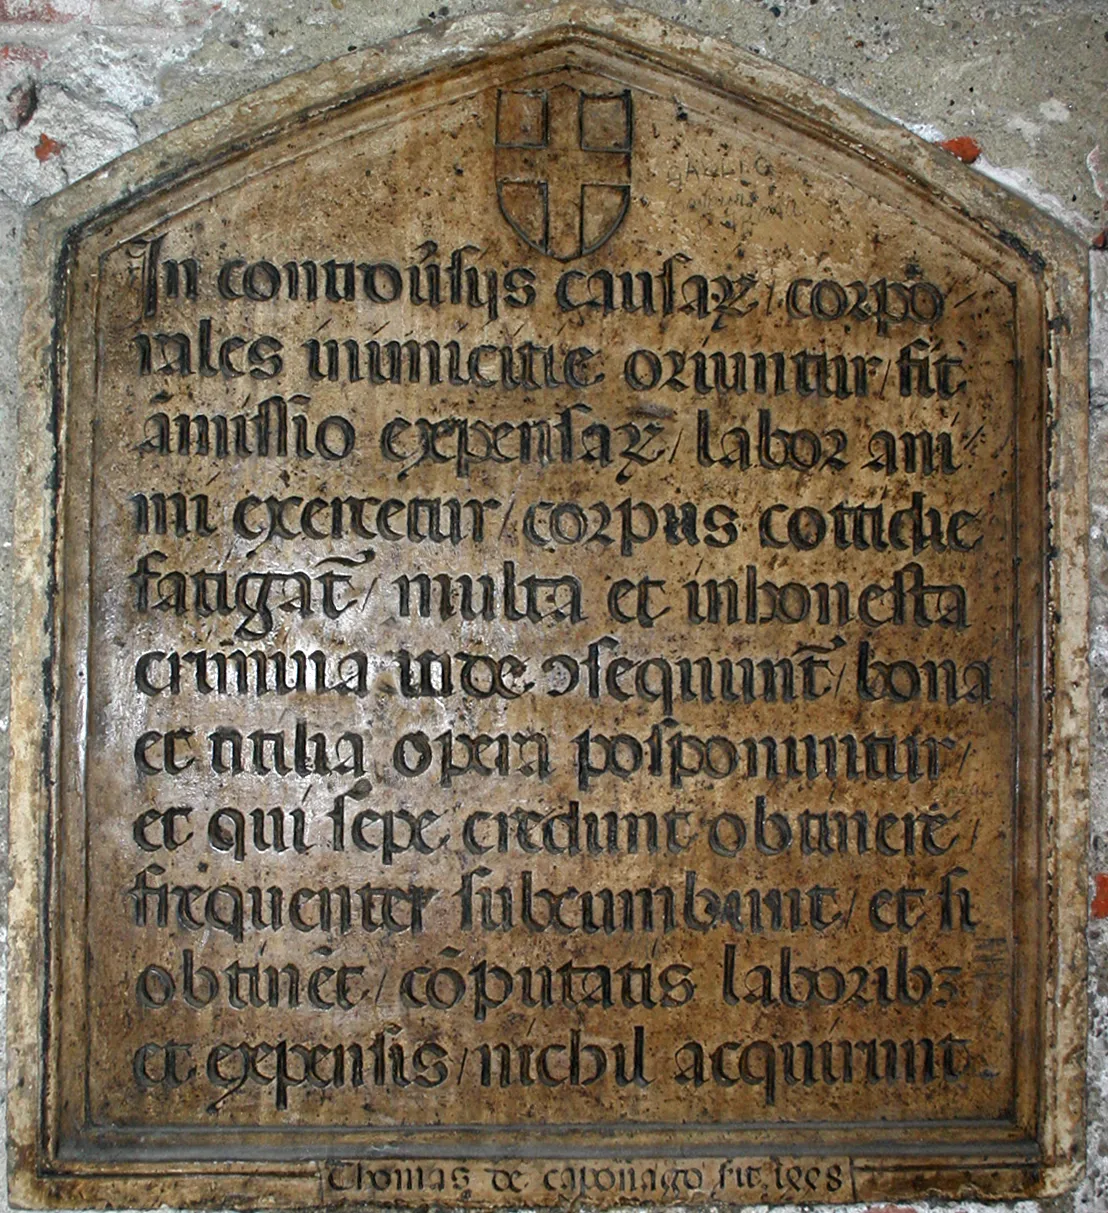 GALLIO
In controũsijs causaꝝ/corpo
rales inimicitie oriuntur/fit
amissio expensaꝝ/labor ani
mi exercetur/corpus cottidie
fatigat̃/multa et inhonesta
crimina inde ↄsequunt̃/bona
et utilia opera posponuntur/
et qui sepe credunt obtinere/
frequenter subcumbunt/et si
obtinẽt/cõputatis laboribꝫ
et expensis/nichil acquirunt.
Thomas de caponago fit 1448